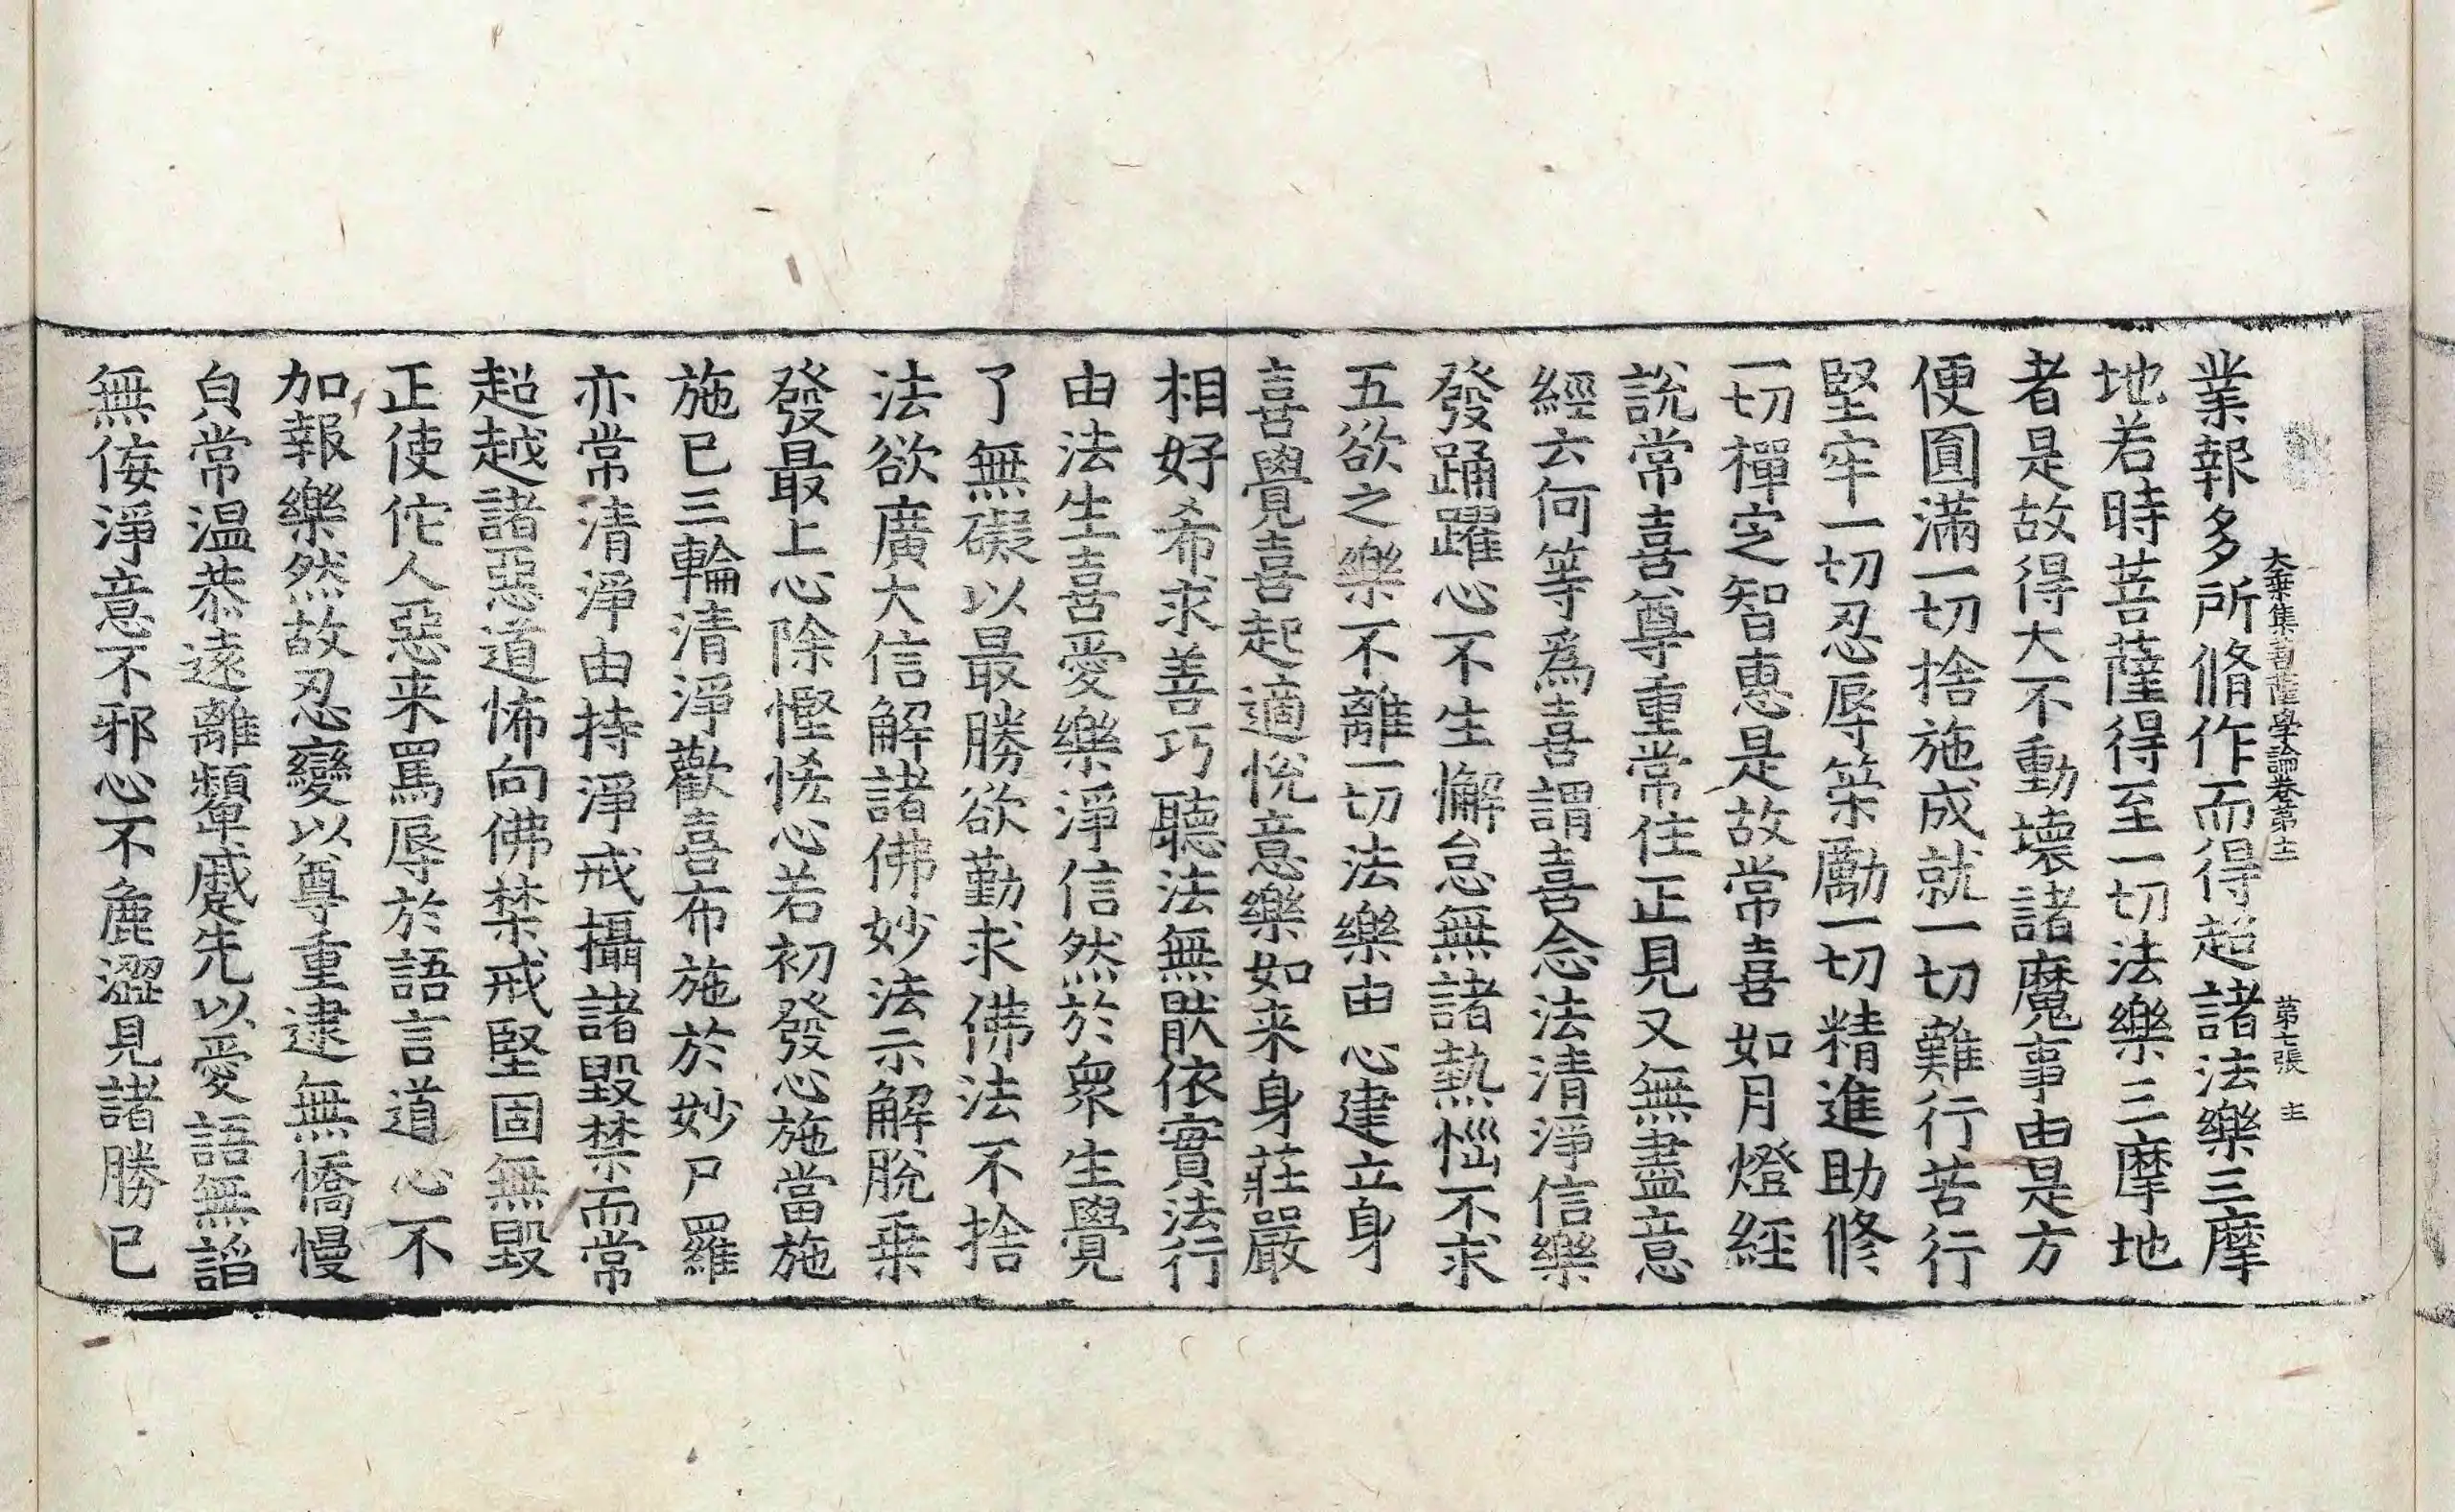 大乗集菩薩學論卷第十 第七張 主
業報多所脩作而得超諸法樂三摩
地若時菩薩得至一切法樂三摩地
者是故得大不動壞諸魔事由是方
便圓滿一切捨施成就一切難行苦行
堅牢一切忍辱策勵一切精進助修
一切禪定智惠是故常喜如月燈經
說常喜尊重常住正見又無盡意
經云何等爲喜謂喜念法清淨信樂
發踊躍心不生懈怠無諸熱惱不求
五欲之樂不離一切法樂由心建立身
喜覺喜起適悅意樂如来身莊嚴
相好希求善巧聽法無猒依實法行
由法生喜愛樂淨信然於衆生覺
了無礙以最勝欲勤求佛法不捨
法欲廣大信解諸佛妙法示解脫乗
發最上心除慳悋心若初發心施當施
施已三輪清淨歡喜布施於妙尸羅
亦常清淨由持淨戒攝諸毀禁而常
超越諸惡道怖向佛禁戒堅固無毀
正使佗人惡来罵辱於語言道心不
加報樂然故忍變以尊重逮無憍慢
㒵常温恭遠離顰蹙先以愛語無謟
無侫淨意不邪心不麁澀見諸勝已